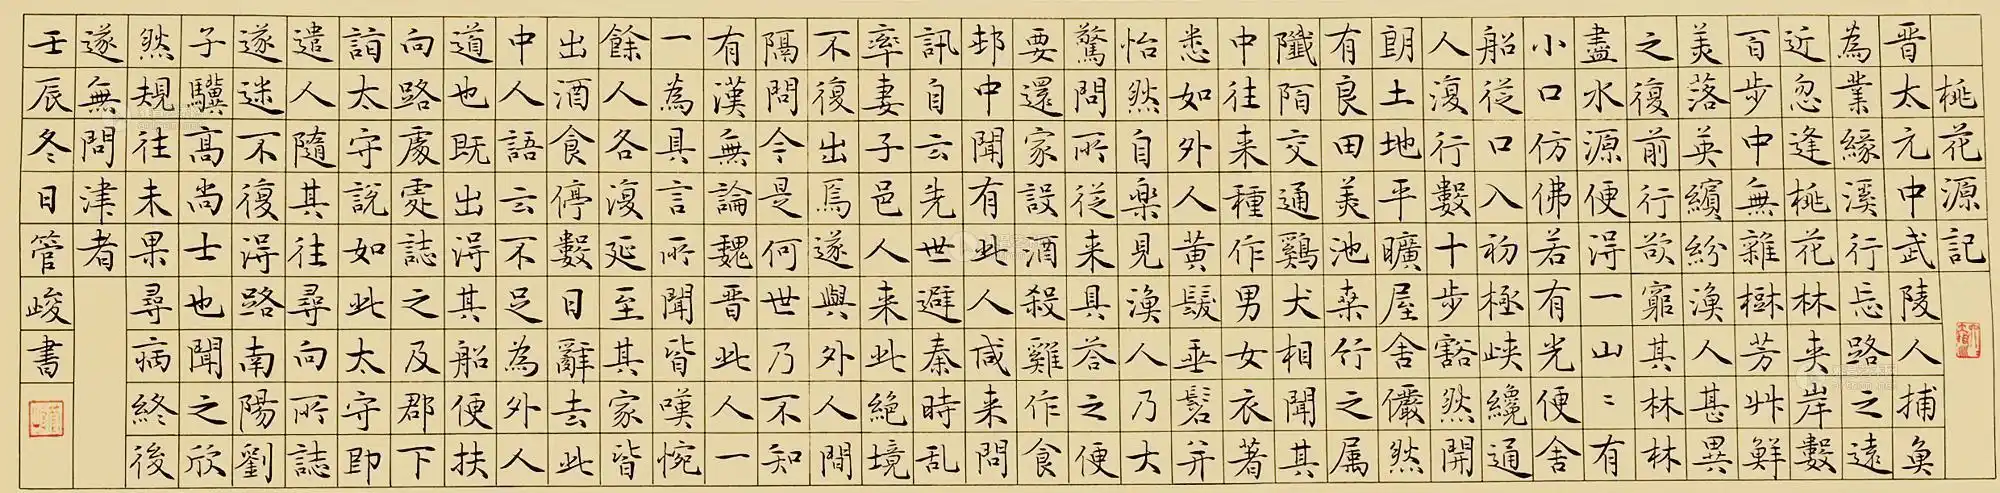 桃花源記
晋太元中武陵人捕魚
為業緣溪行忘路之遠
近忽逢桃花林夹岸數
百步中無雜樹芳艸鮮
美落英繽紛漁人甚異
之復前行欲窮其林林
盡水源便得一山〻有
小口仿佛若有光便舍
船從口入初極峽纔通
人復行數十步豁然開
朗土地平曠屋舍儼然
有良田美池桑竹之属
阡陌交通鷄犬相聞其
中往来種作男女衣著
悉如外人黄髮垂髫并
怡然自樂見漁人乃大
驚問所從来具答之便
要還家設酒殺雞作食
邨中聞有此人咸来問
訊自云先世避秦時乱
率妻子邑人来此絶境
不復出焉遂與外人間
隔問今是何世乃不知
有漢無論魏晋此人一
一為具言所聞皆嘆惋
餘人各復延至其家皆
出酒食停數日辭去此
中人語云不足為外人
道也既出得其船便扶
向路處處誌之及郡下
詣太守說如此太守即
遣人隨其往尋向所誌
遂迷不復得路南陽劉
子驥高尚士也聞之欣
然規往未果尋病終後
遂無問津者
壬辰冬日管峻書